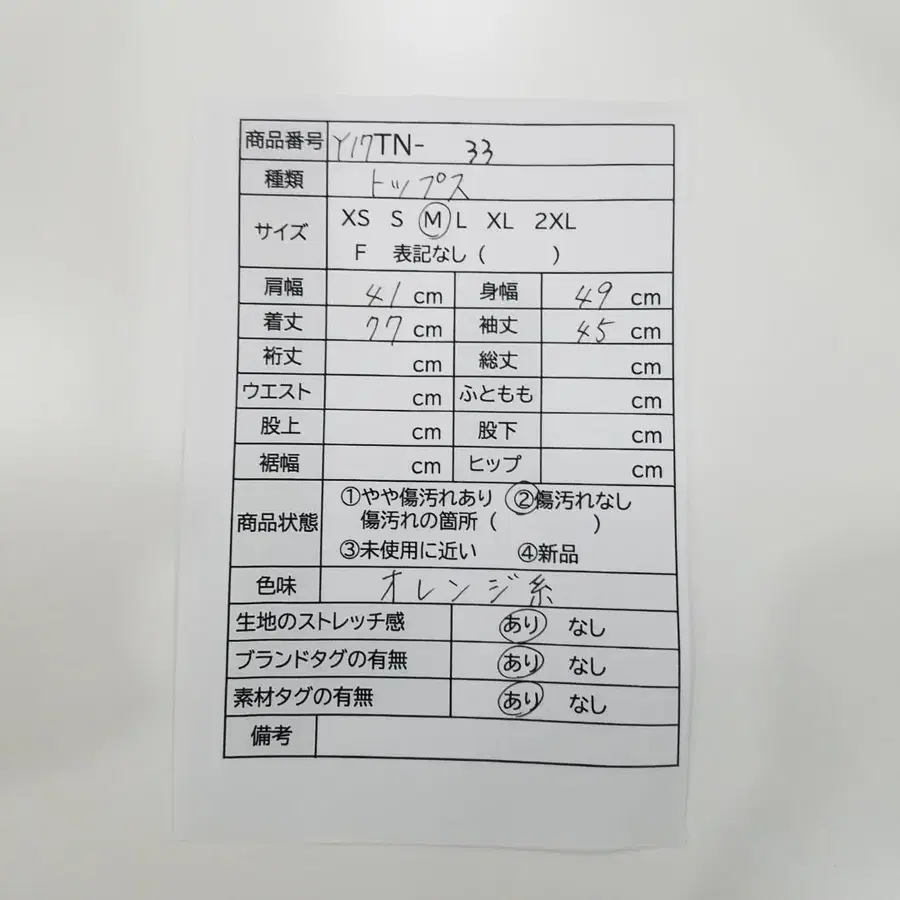 商品番号 Y17TN- 33
種類 トップス
サイズ XS S M L XL 2XL
F 表記なし ( )
肩幅 41 cm 身幅 49 cm
着丈 77 cm 袖丈 45 cm
裄丈 cm 総丈 cm
ウエスト cm ふともも cm
股上 cm 股下 cm
裾幅 cm ヒップ cm
商品状態 ①やや傷汚れあり ②傷汚れなし
傷汚れの箇所 ( )
③未使用に近い ④新品
色味 オレンジ糸
生地のストレッチ感 あり なし
ブランドタグの有無 あり なし
素材タグの有無 あり なし
備考